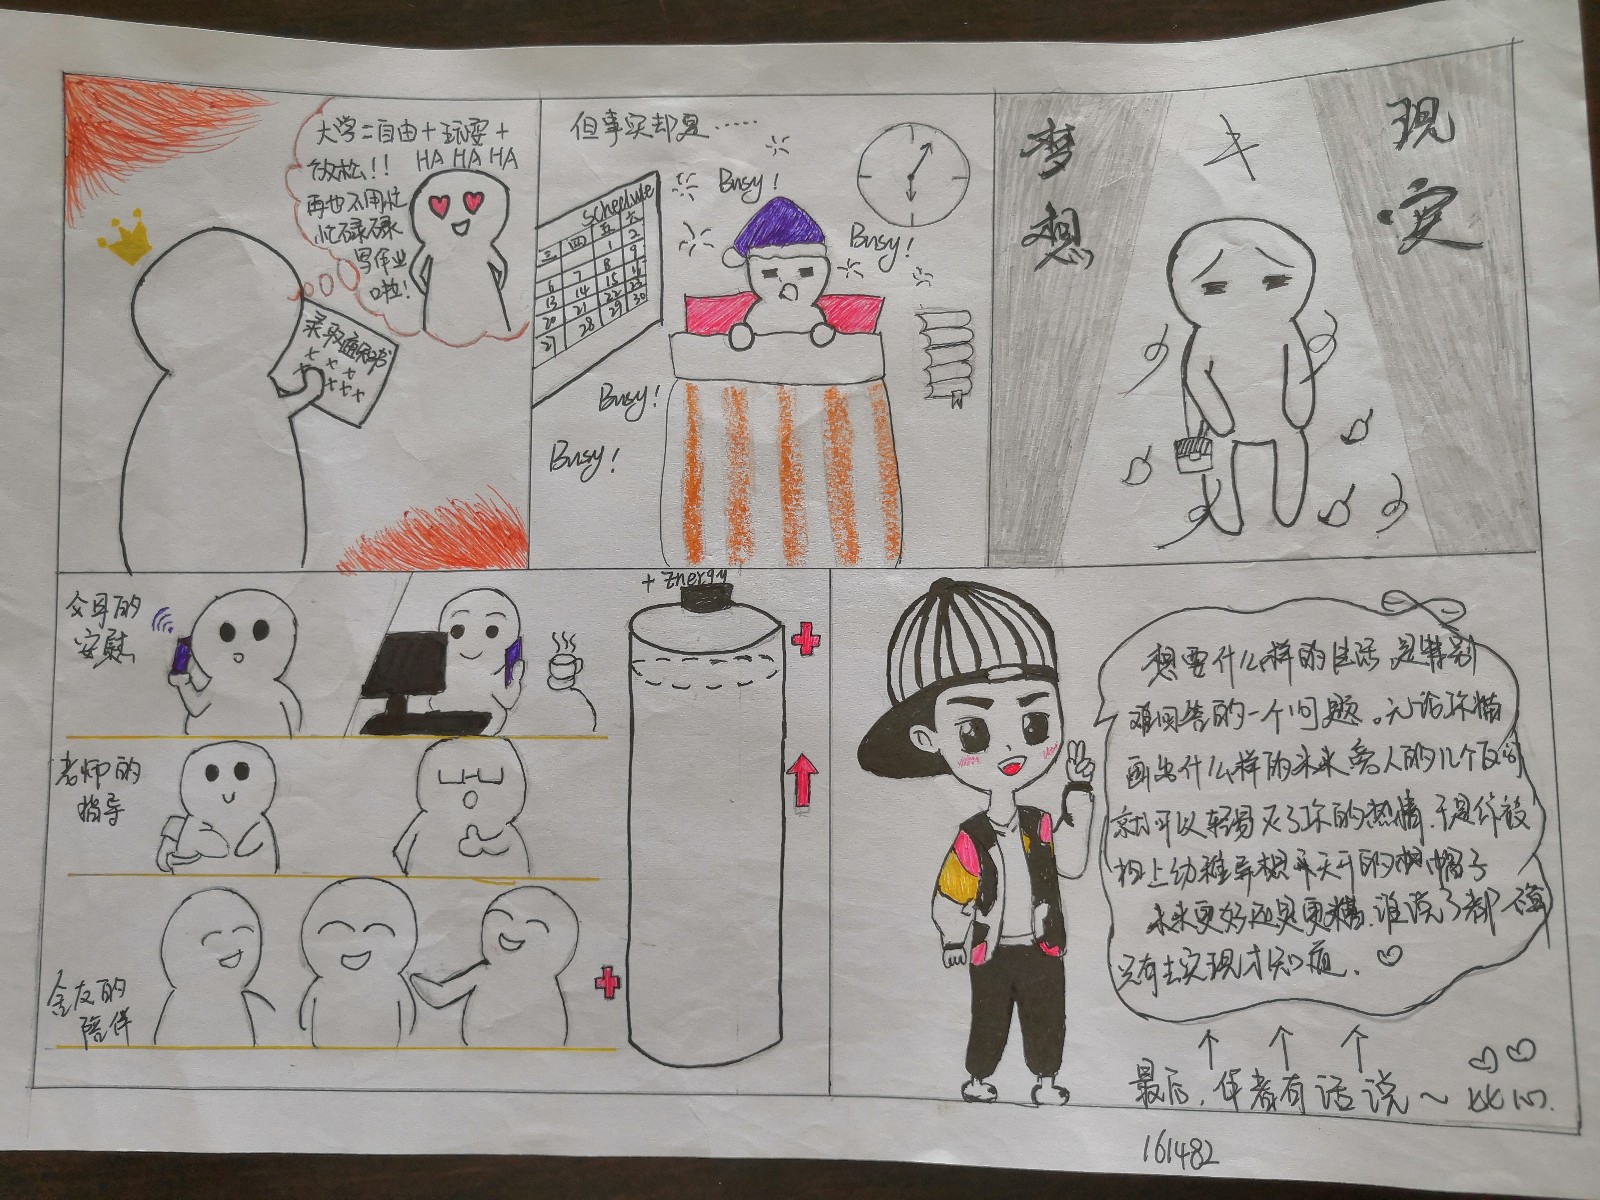 大学=自由+玩耍+
放松!! HA HA HA
再也不用忙
忙碌碌
写作业
啦!
录取通知书
但事实却是……
Busy!
Busy!
Schedule
三 四 五 六
1 2
7 8 9
6 14 15 16
13 21 22 23
20 28 29 30
27
Busy!
Busy!
梦想
≠
现实
父母的
安慰
老师的
指导
舍友的
陪伴
+ Energy
想要什么样的生活是特别
难回答的一个问题。无论你描
画出什么样的未来旁人的几个反问
就可以轻易灭了你的热情.于是你被
扣上幼稚异想天开的帽子
未来更好还是更糟.谁说了都不算
只有去实现才知道.
最后,作者有话说~比心.
161482